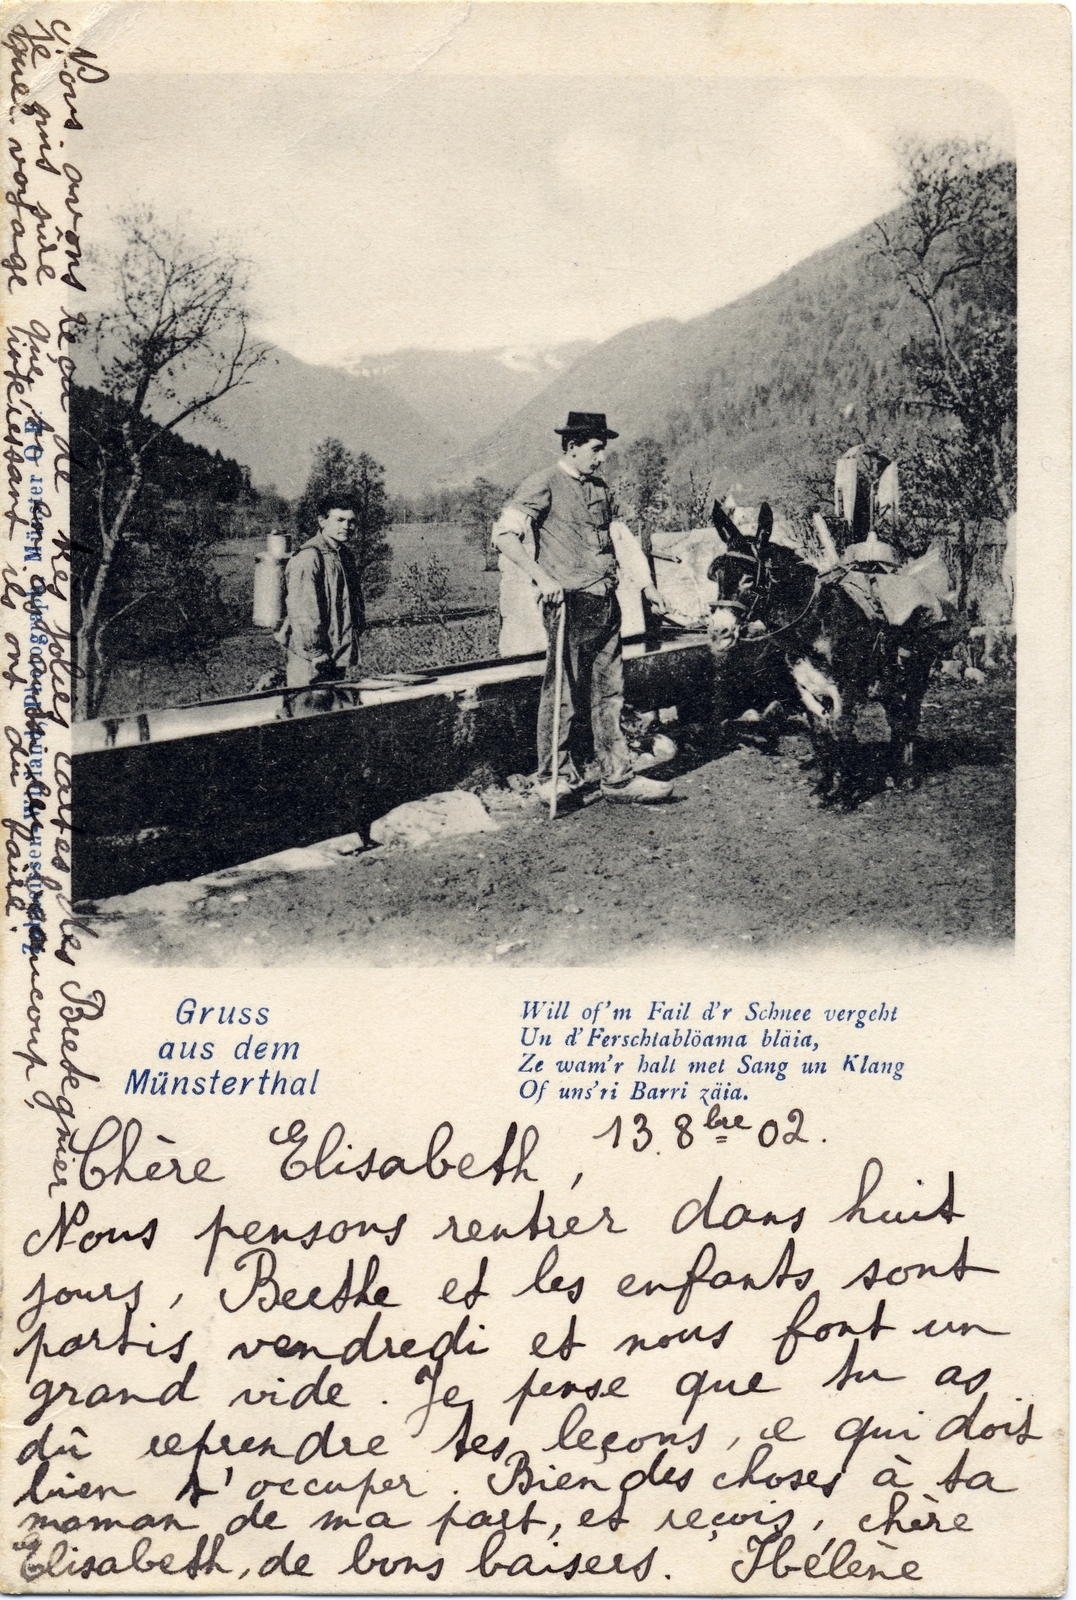 Gruss
aus dem
Münsterthal
Will of'm Fail d'r Schnee vergeht
Un d'Ferschtablöama bläia,
Ze wam'r halt met Sang un Klang
Of uns'ri Barri zäia.
13 8bre 02.
Chère Elisabeth,
Nous pensons rentrer dans huit
jours, Berthe et les enfants sont
partis vendredi et nous font un
grand vide. Je pense que tu as
dû reprendre tes leçons, ce qui doit
bien t'occuper. Bien des choses à ta
maman de ma part, et reçois, chère
Elisabeth, de bons baisers. Hélène
Nous avons reçu de très jolies cartes des Bretegnier
je suis sûre que beaucoup,
que voyage intéressant ils ont du faire.